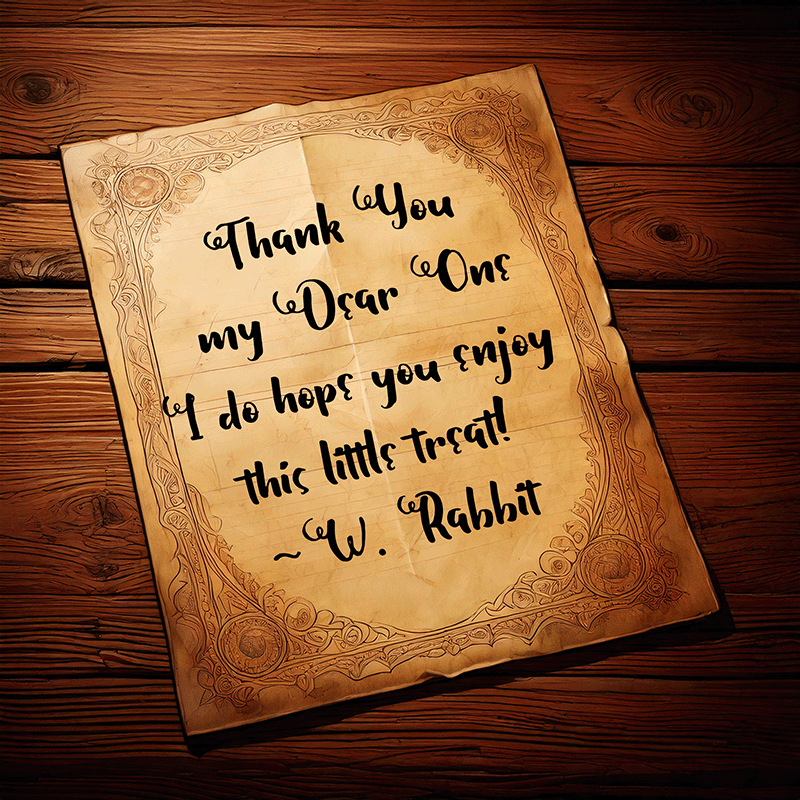 Thank You
my Dear One
I do hope you enjoy
this little treat!
~W. Rabbit